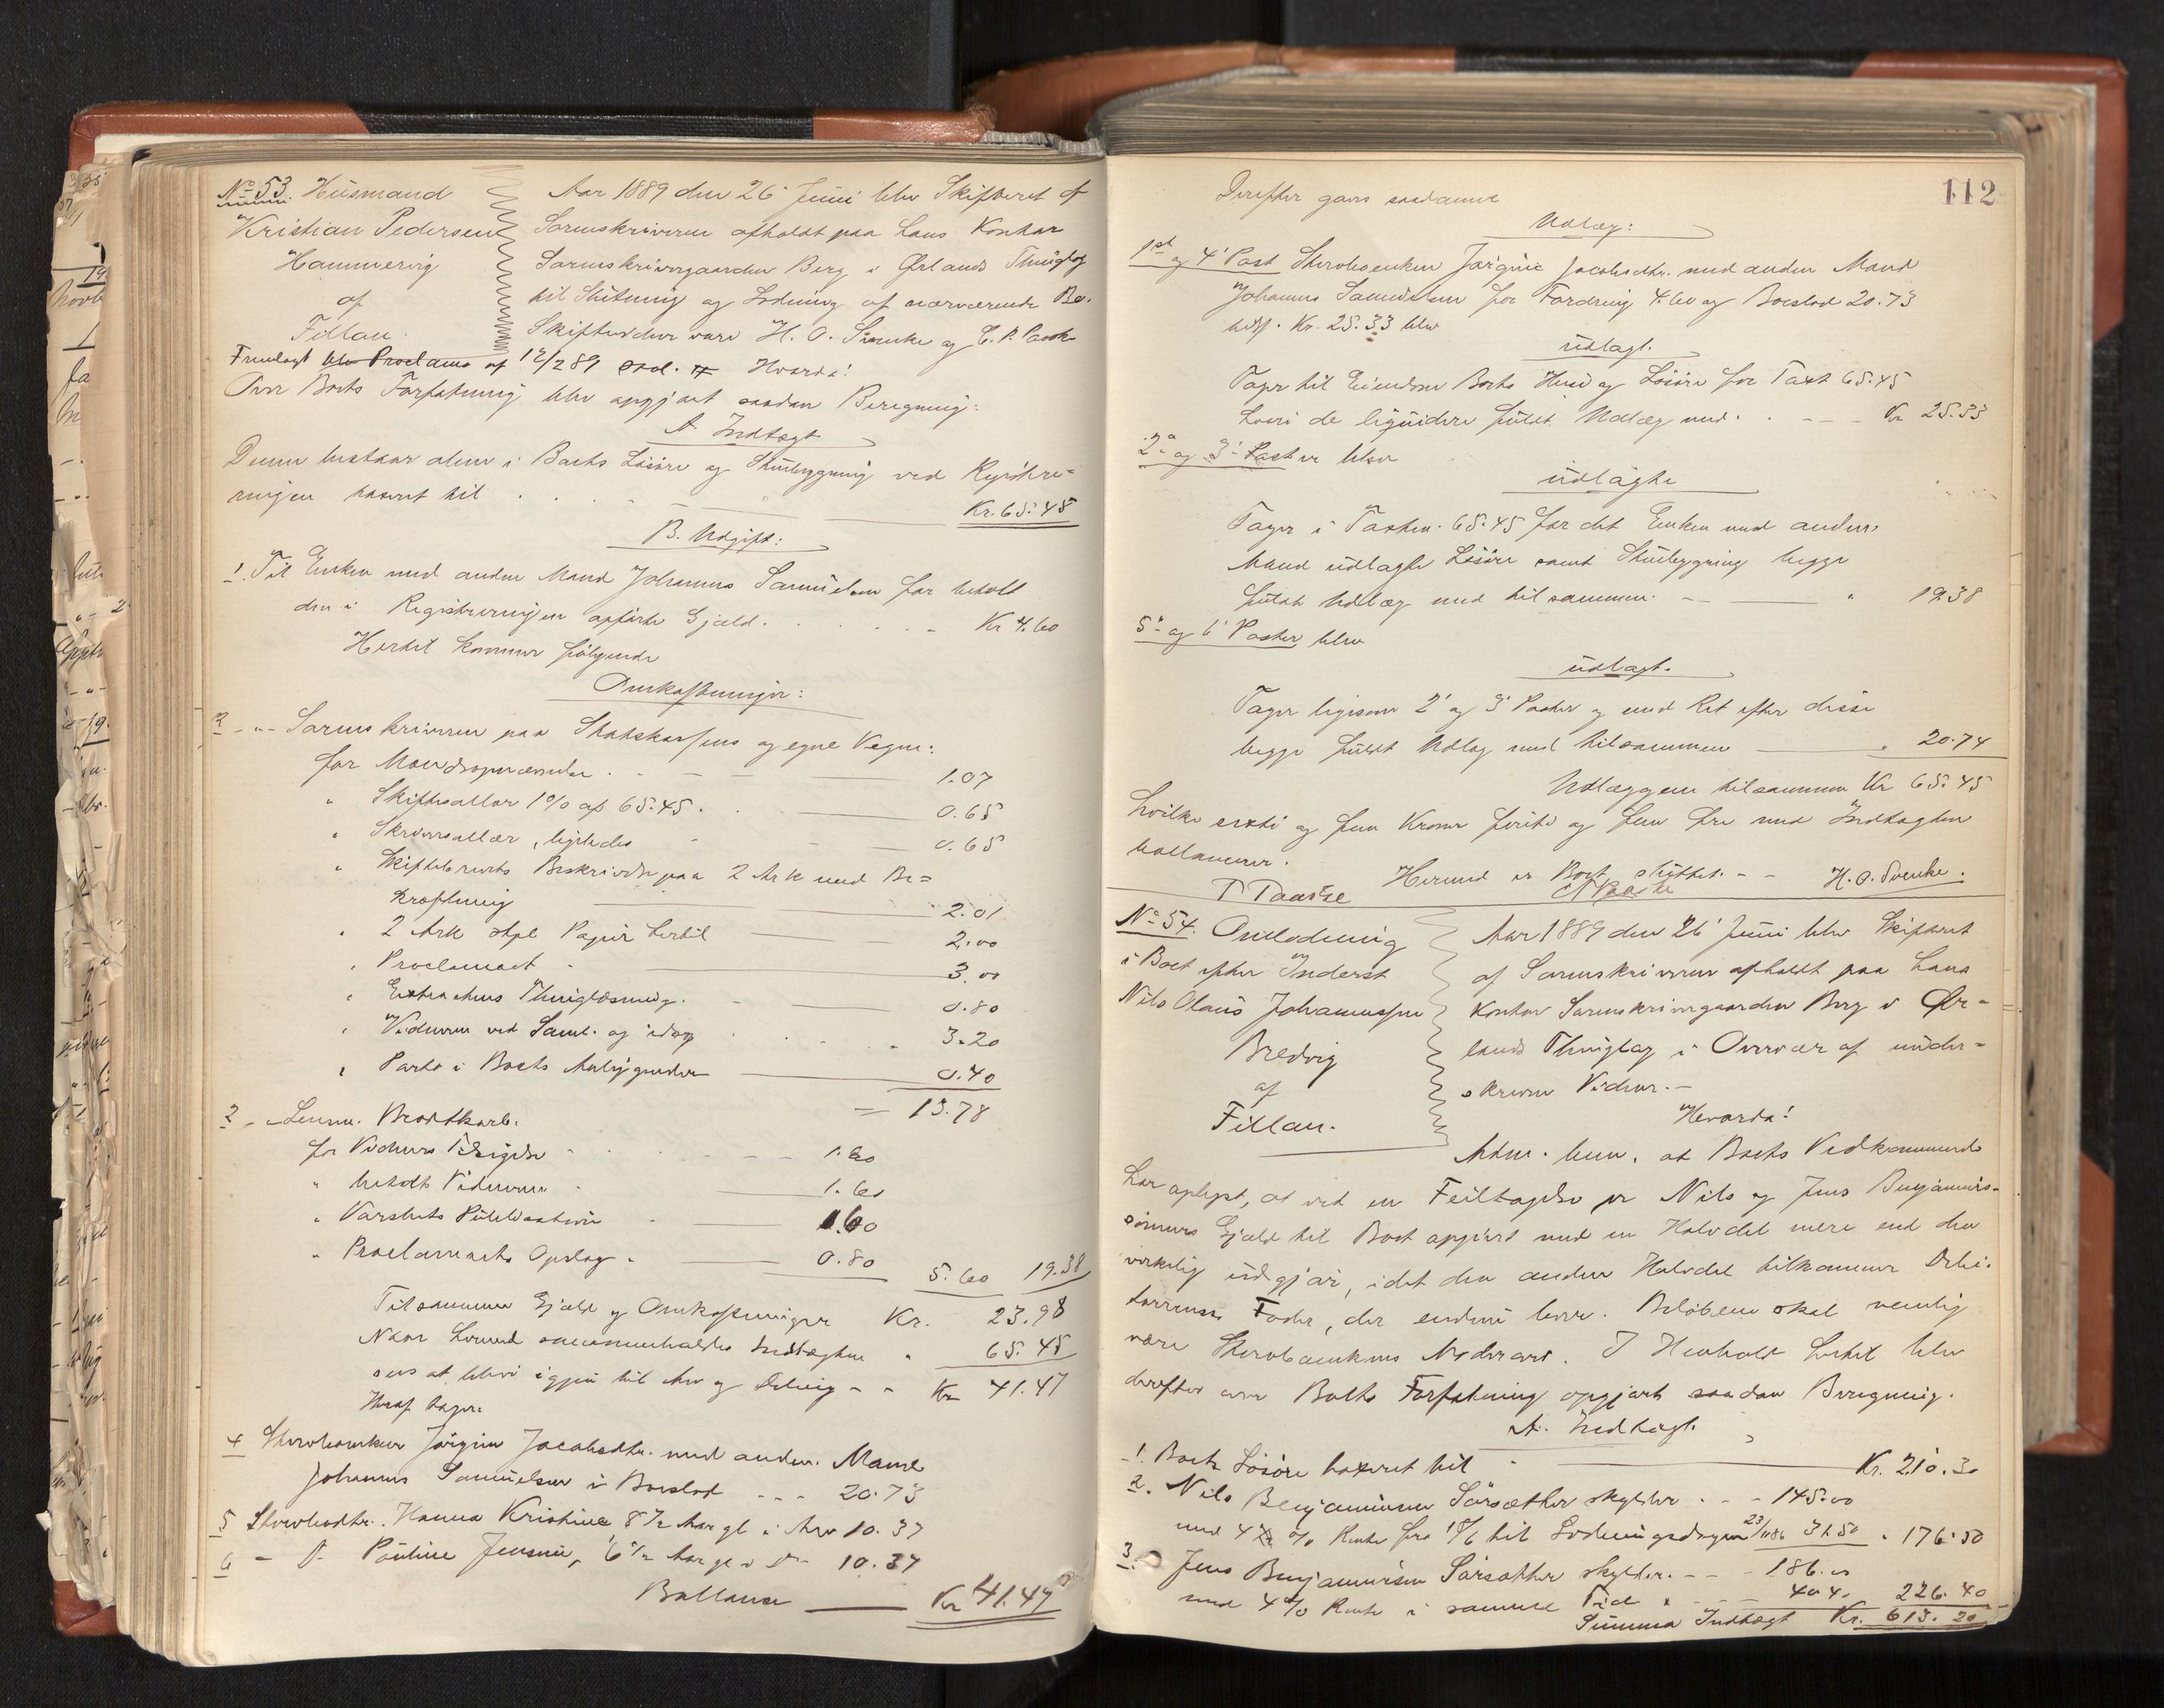 No 53. Husmand
Kristian Pedersen
Hammervig
af
Fillan.
Aar 1889 den 26' Juni blev Skifteret af
Sorenskriveren afholdt paa hans Kontor
Sorenskrivergaarden Berg i Ørlands Thinglag
til Slutning og Lodning af nærværende Bo.
Skiftevidner vare H. O. Svenke og
Fremlagt blev Proclama af 12/2 89 Hvorda!
Over Boets Forfatning blev opgjort saadan Beregning:
A. Indtægt
Denne bestaar alene i Boets Løsøre og Stuebygning ved Registre-
ringen taxeret til . . . Kr. 65.45
B. Udgift:
1. Til Enken med anden Mand Johannes Samuelsen for betalt
den i Registreringen opførte Gjæld . . . Kr 4.60
Hertil kommer følgende
Omkostninger:
2 -"- Sorenskriveren paa Statskassens og egne Vegne:
for 1.07
" Skiftesallær 1% af 65.45 . 0.65
" Skriversallær, ligeledes 0.65
" Skiftebrevets Beskrivelse paa 2 Ark med Be=
kræftning 2.01
" 2 Ark stpl Papir hertil 2.00
" Proclamaet 3.00
" Extractens Thinglæsning. 0.80
" Vidnerne ved Saml. og idag 3.20
" Porto i Boets Anliggender 0.40
= 13.78
3 - Lensm.
for Vidners Tilsigelse 1.60
" betalt Vidnerne 1.60
" Varslets Publication 1.60
" Proclamaets Opslag . 0.80 5.60 19.38
Tilsammen Gjæld og Omkostninger Kr. 23.98
Naar hermed sammenholdes Indtægten " 65.45
sees at blive igjen til Arv og Deling - - Kr 41.47
Heraf tager:
4 Stervboenken Jørgine Jacobsdtr. med anden Mand
Johannes Samuelsen i Boeslod - - - 20.73
5 Stervbodtr. Hanna Kristine, 8 1/2 Aar gl i Arv 10.37
6 - D- Pauline Jensine, 6 1/2 Aar gl i D- 10.37
Ballance Kr 41.47
112
Derefter gaves saadanne
Udlæg:
1ste og 4' Post Stervboenken Jørgine Jacobsdtr. med anden Mand
Johannes Samuelsen for Fordring 4.60 og Boeslod 20.73
tils. Kr. 25.33 blev
udlagt.
Tager til Eiendom Boets Hus og Løsøre for Taxt 65.45
hvori de liqvidere fuldt Udlæg med . . - - - Kr 25.33
2' og 3' Poster blev
udlagte
Tager i Taxten 65.45 for det Enken med anden
Mand udlagte Løsøre samt Stuebygning begge
fuldt Udlæg med tilsammen - " 19.38
5' og 6' Poster blev
udlagt.
Tager ligesom 2' og 3' Poster og med Ret efter disse
begge fuldt Udlæg med tilsammen " 20.74
Udlæggene tilsammen Kr 65.45
hvilke sexti og fem Kroner firti og fem Øre med Indtægten
ballancerer.
Hermed er Boet sluttet. - -
H. O. Svenke.
No 54. Omlodning
i Boet efter Inderst
Nils Olaus Johannessen
Bredvig
af
Fillan.
Aar 1889 den 26' Juni blev Skifteret
af Sorenskriveren afholdt paa hans
Kontor Sorenskrivergaarden Berg i Ør-
lands Thinglag i Overvær af under-
skrevne Vidner. -
Hvorda!
Adm. bem. at Boets Vedkommende
har oplyst, at ved en Feiltagelse er Nils og Jens Benjamins-
sønners Gjæld til Boet opført med en Halvdel mere end den
virkelig udgjør, idet den anden Halvdel tilkommer Debi-
torernes Fader, der endnu lever. Beløbene skal nemlig
være Stervboenkens Mødrearv. I Henhold hertil blev
derefter over Boets Forfatning opgjort saadan Beregning.
A. Indtægt.
1. Boets Løsøre taxeret til Kr. 210.30
2. Nils Benjaminsen Sørsæther skylder . - - 145.00
med 4 % Rente fra 18/6 til Lodningsdagen 23/11 86 31.50 " 176.50
3. Jens Benjaminsen Sørsæther skylder. - - - 186.00
med 4% Rente i samme Tid " - - 40.40 226.40
Summa Indtægt Kr. 613.20